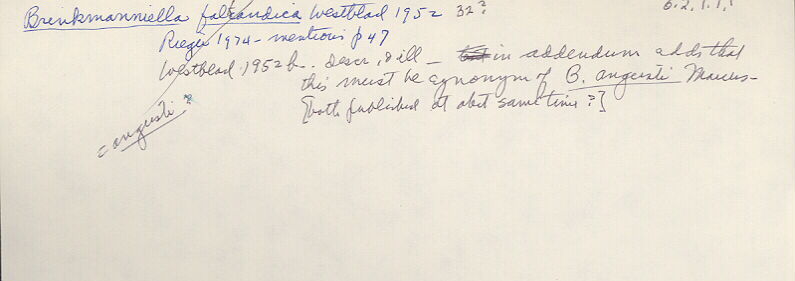 Brinkmanniella falcandica Westblad 1952 32? 6.2.1.1.?
Rieger 1974 - mentions p 47
Westblad 1952b.. descr. & ill - in addendum adds that
this must be synonym of B. augusti Marcus -
[both published at abt same time?]
= augusti ?